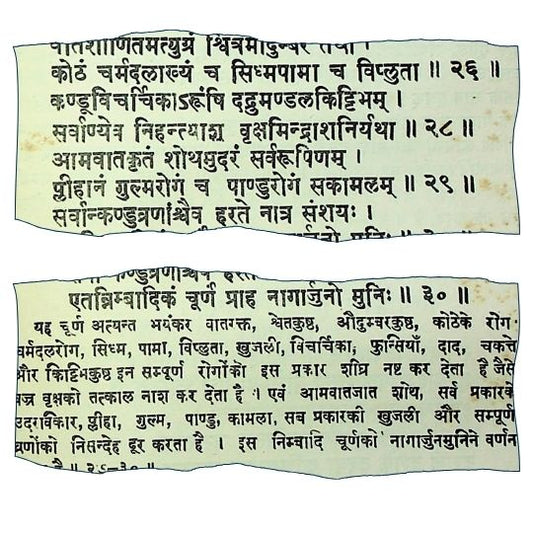 वातशोणितमत्युग्रं श्वित्रमौदुम्बरं तथा ।
कोठं चर्मदलाख्यं च सिध्मपामा च विप्लुता ॥ २६ ॥
कण्डूविचर्चिकाऽरूंषि दद्रुमण्डलकिट्टिभम् ।
सर्वाण्येव निहन्त्याशु वृक्षमिन्द्राशनिर्यथा ॥ २८ ॥
आमवातकृतं शोथमुदरं सर्वरूपिणम् ।
प्लीहानं गुल्मरोगं च पाण्डुरोगं सकामलम् ॥ २९ ॥
सर्वान्कण्डुव्रणांश्चैव हरते नात्र संशयः ।
एतन्निम्बादिकं चूर्णं प्राह नागार्जुनो मुनिः ॥ ३० ॥
यह चूर्ण अत्यन्त भयंकर वातरक्त, श्वेतकुष्ठ, औदुम्बरकुष्ठ, कोठके रोग
चर्मदलरोग, सिध्म, पामा, विप्लुता, खुजली, विचर्चिका, फुन्सियाँ, दाद, चकत्ते
और किट्टिभकुष्ठ इन सम्पूर्ण रोगोंको इस प्रकार शीघ्र नष्ट कर देता है जैसे
वज्र वृक्षको तत्काल नाश कर देता है । एवं आमवातजात शोथ, सर्व प्रकारके
उदरविकार, प्लीहा, गुल्म, पाण्डु, कामला, सब प्रकारकी खुजली और सम्पूर्ण
व्रणोंको निसन्देह दूर करता है । इस निम्बादि चूर्णको नागार्जुनमुनिने वर्णन